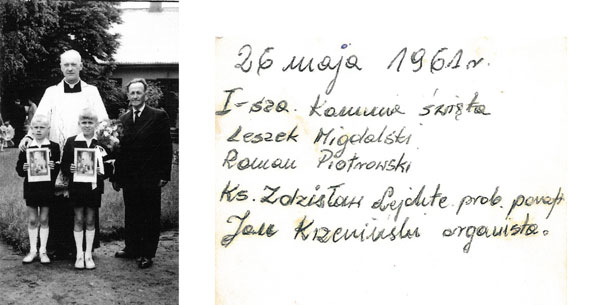 26 maja 1961 r.
I-sza. Komunia święta
Leszek Migdalski
Roman Piotrowski
Ks. Zdzisław Lejdite prob. paraf.
Jan Krzemiński organista.